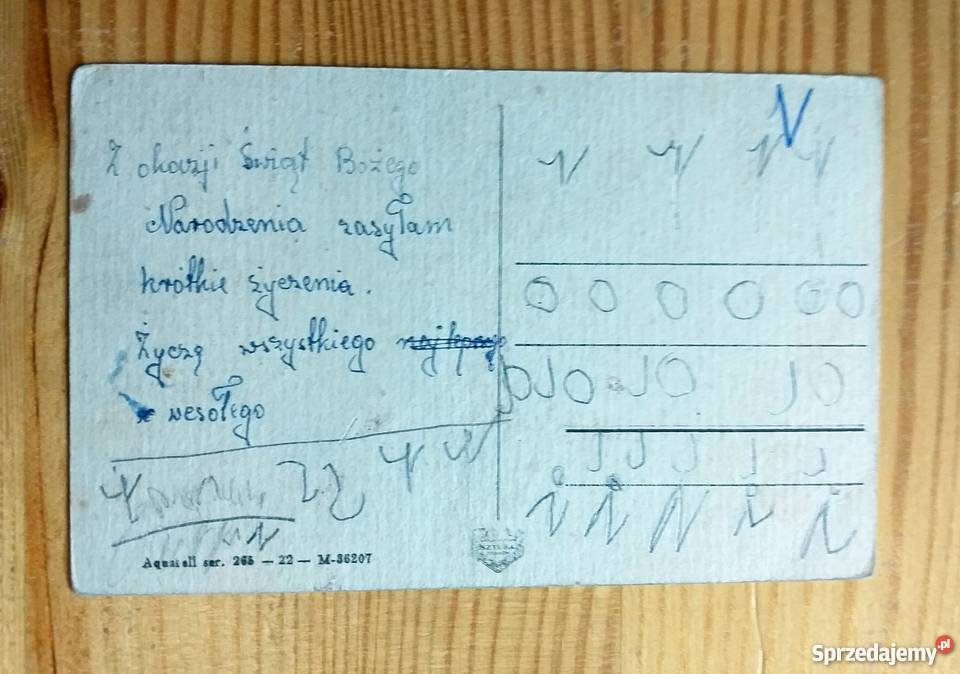 Z okazji Świąt Bożego
Narodzenia zasyłam
krótkie życzenia.
Życzę wszystkiego najlepszego
wesołego
V
N N N N
O O O O O O
O J O J O J O
J J J J J
N N N N N
Aquarell ser. 265 — 22 — M-36207
SZTUKA
Sprzedajemy.pl